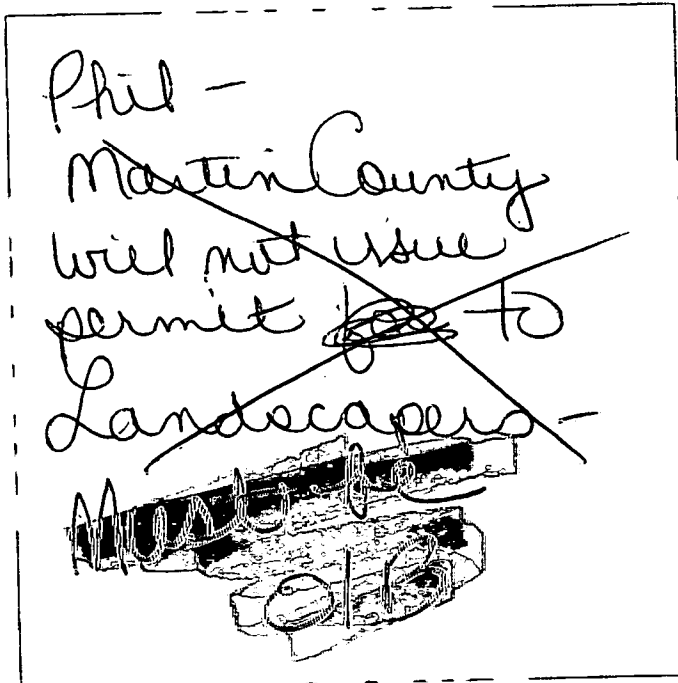 Phil -
Martin County
will not issue
permit to
Landscapers -
Must be